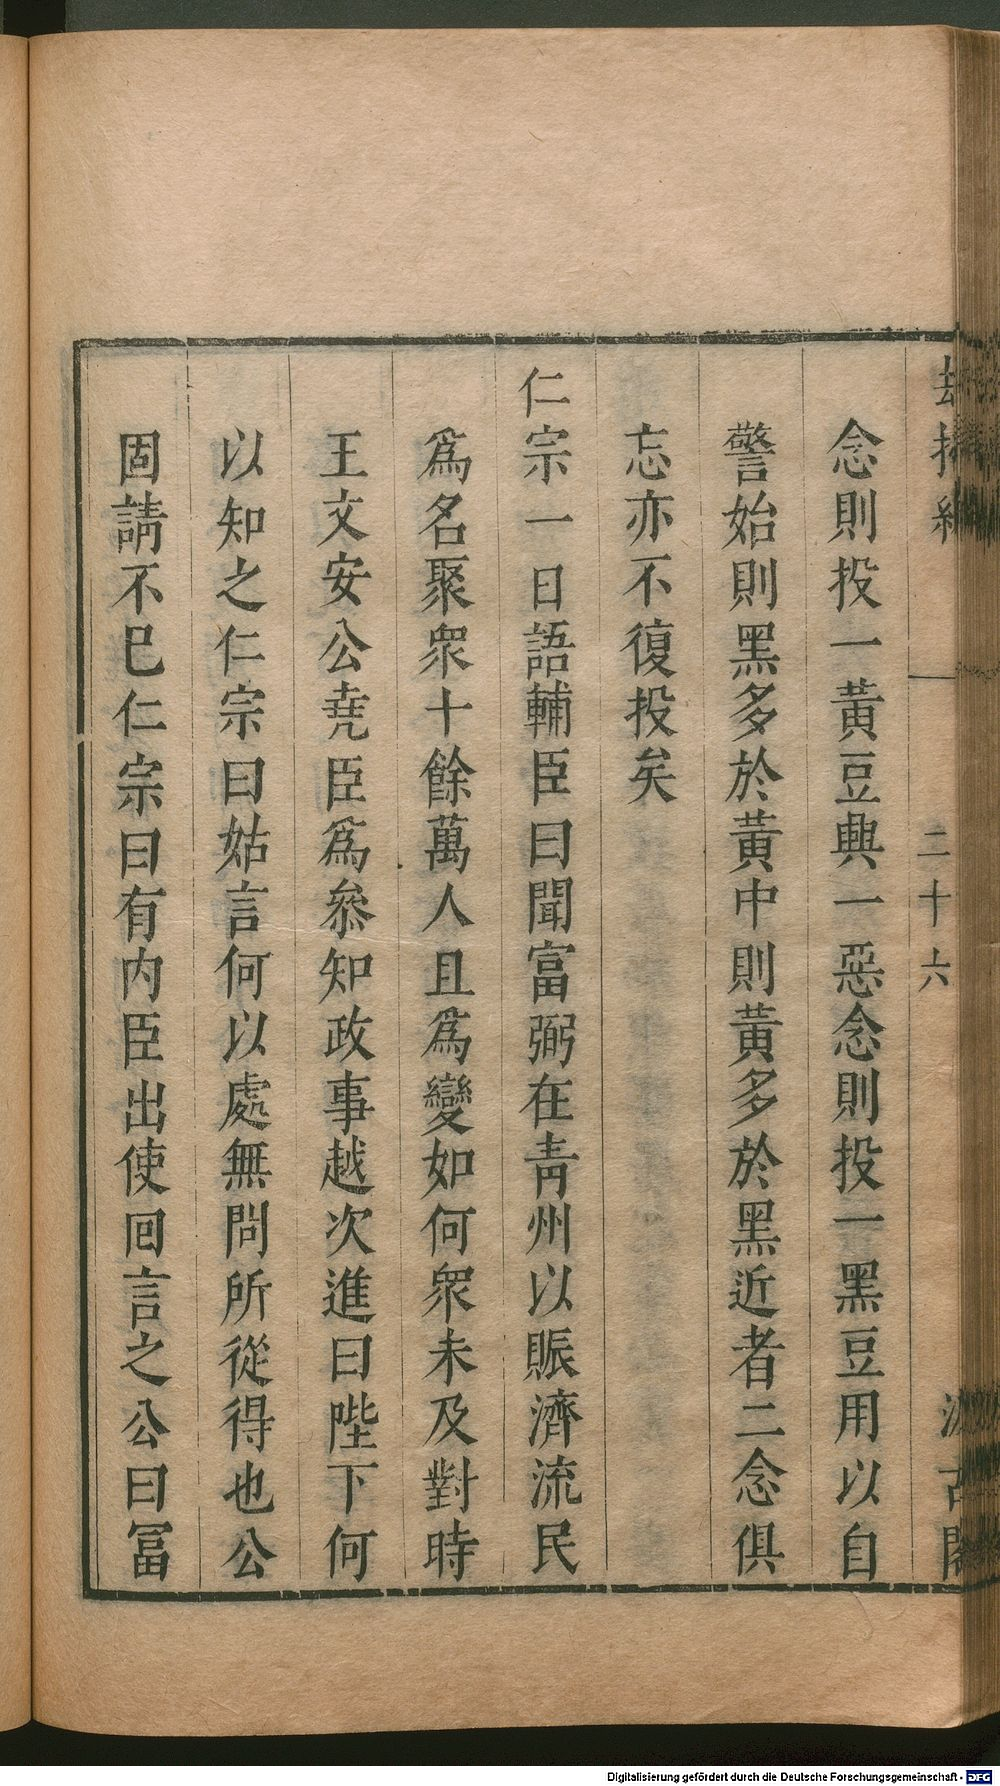 念則投一黃豆興一惡念則投一黑豆用以自
警始則黑多於黃中則黃多於黑近者二念俱
忘亦不復投矣
仁宗一日語輔臣曰聞富弼在靑州以賑濟流民
爲名聚衆十餘萬人且爲變如何衆未及對時
王文安公堯臣爲叅知政事越次進曰陛下何
以知之仁宗曰姑言何以處無問所從得也公
固請不巳仁宗曰有内臣出使回言之公曰冨
二十六
古閣
Digitalisierung gefördert durch die Deutsche Forschungsgemeinschaft - DFG